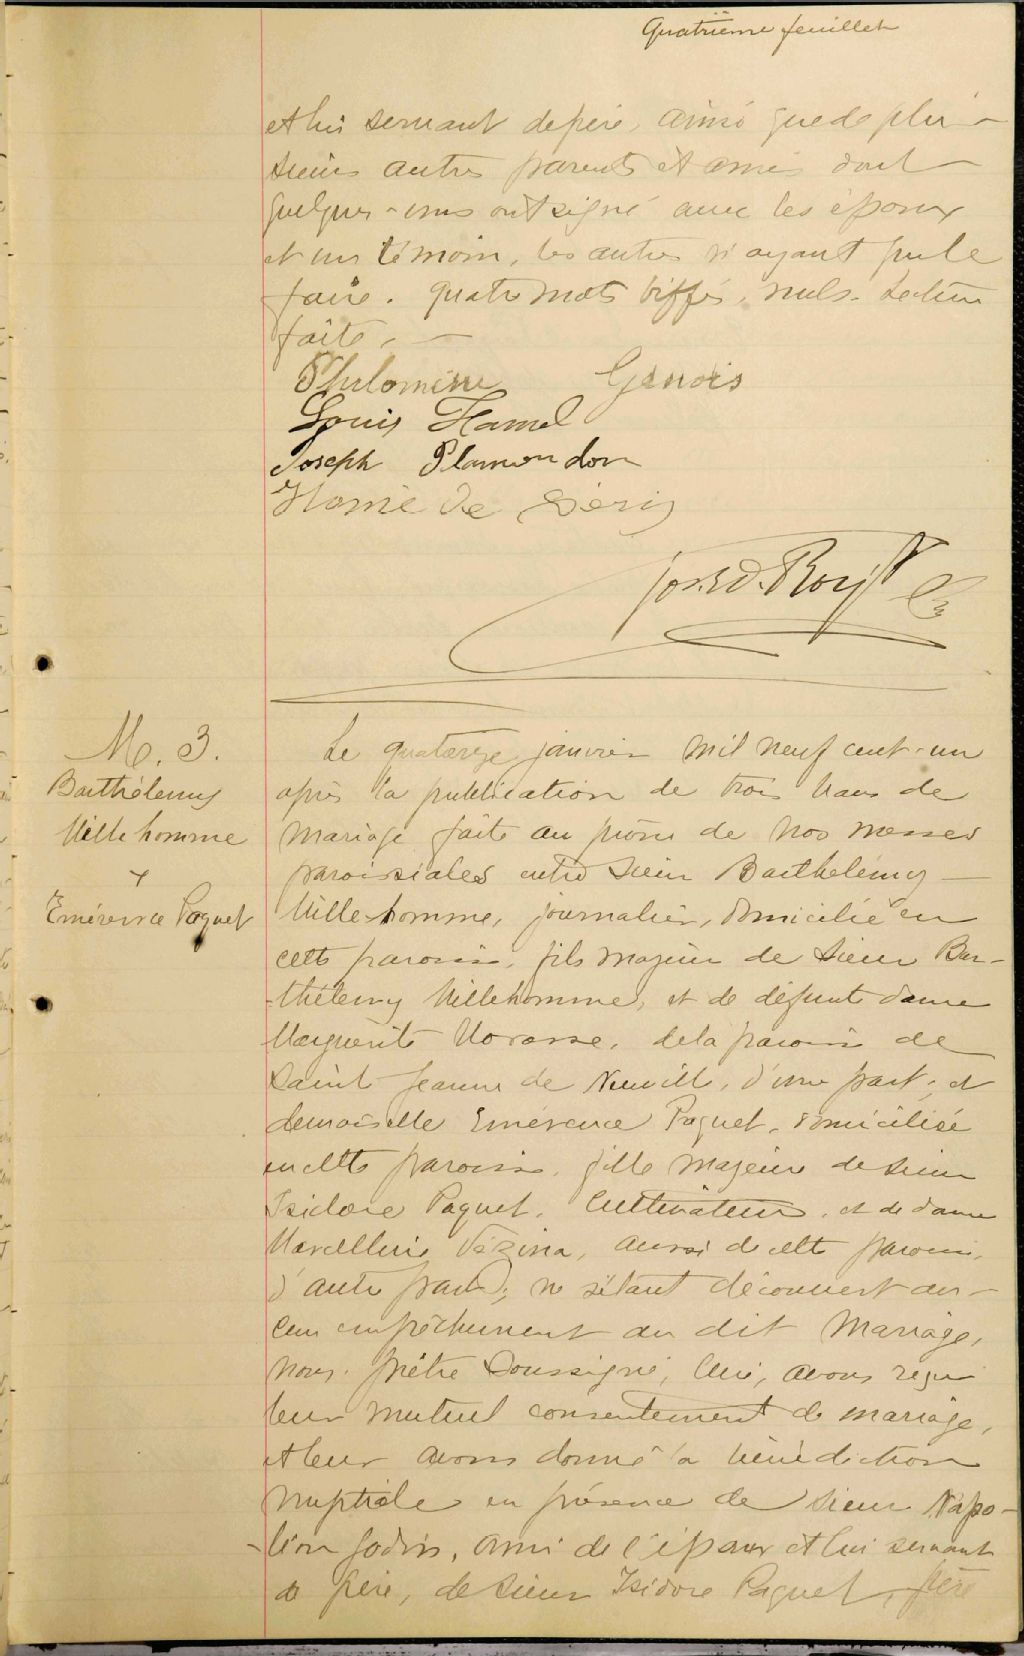 Quatrième feuillet
et lui servant de père, ainsi que de plu-
sieurs autres parents et amis dont
quelques-uns ont signé avec les époux
et un témoin, les autres n'ayant pu le
faire. quatre mots biffés, nuls. Lecture
faite. —
Philomène Genois
Louis Hamel
Joseph Plamondon
de
Jos. Ed. Roy, Ptre
M. 3.
Barthélemy
Villehomme
+
Emérence Paquet
Le quatorze janvier mil neuf cent-un
après la publication de trois bans de
mariage faite au prône de nos messes
paroissiales entre Sieur Barthélemy —
Villehomme, journalier, domicilié en
cette paroisse, fils majeur de Sieur Bar-
-thélemy Villehomme, et de défunte dame
Marguerite Morasse, de la paroisse de
Saint Jeanne de Neuville, d'une part; et
demoiselle Emérence Paquet, domicilisé
en cette paroisse, fille majeure de Sieur
Isidore Paquet, Cultivateur, et de dame
Marcelline Vézina, aussi de cette paroisse,
d'autre part; ne s'étant découvert au-
cun empêchement au dit mariage,
nous, prêtre Soussigné, Curé, avons reçu
leur mutuel consentement de mariage,
et leur avons donné la bénédiction
nuptiale en présence de Sieur Napo-
-léon Godin, ami de l'époux et lui servant
de père, de Sieur Isidore Paquet, père